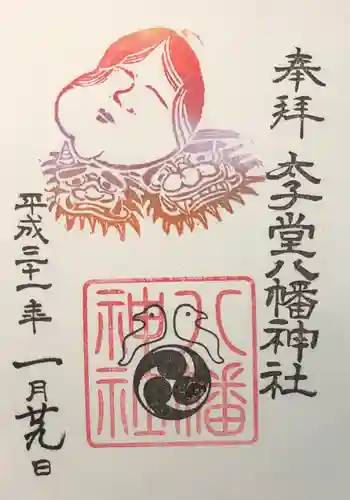 奉拝
太子堂八幡神社
八幡
神社
平成三十一年
一月廿九日